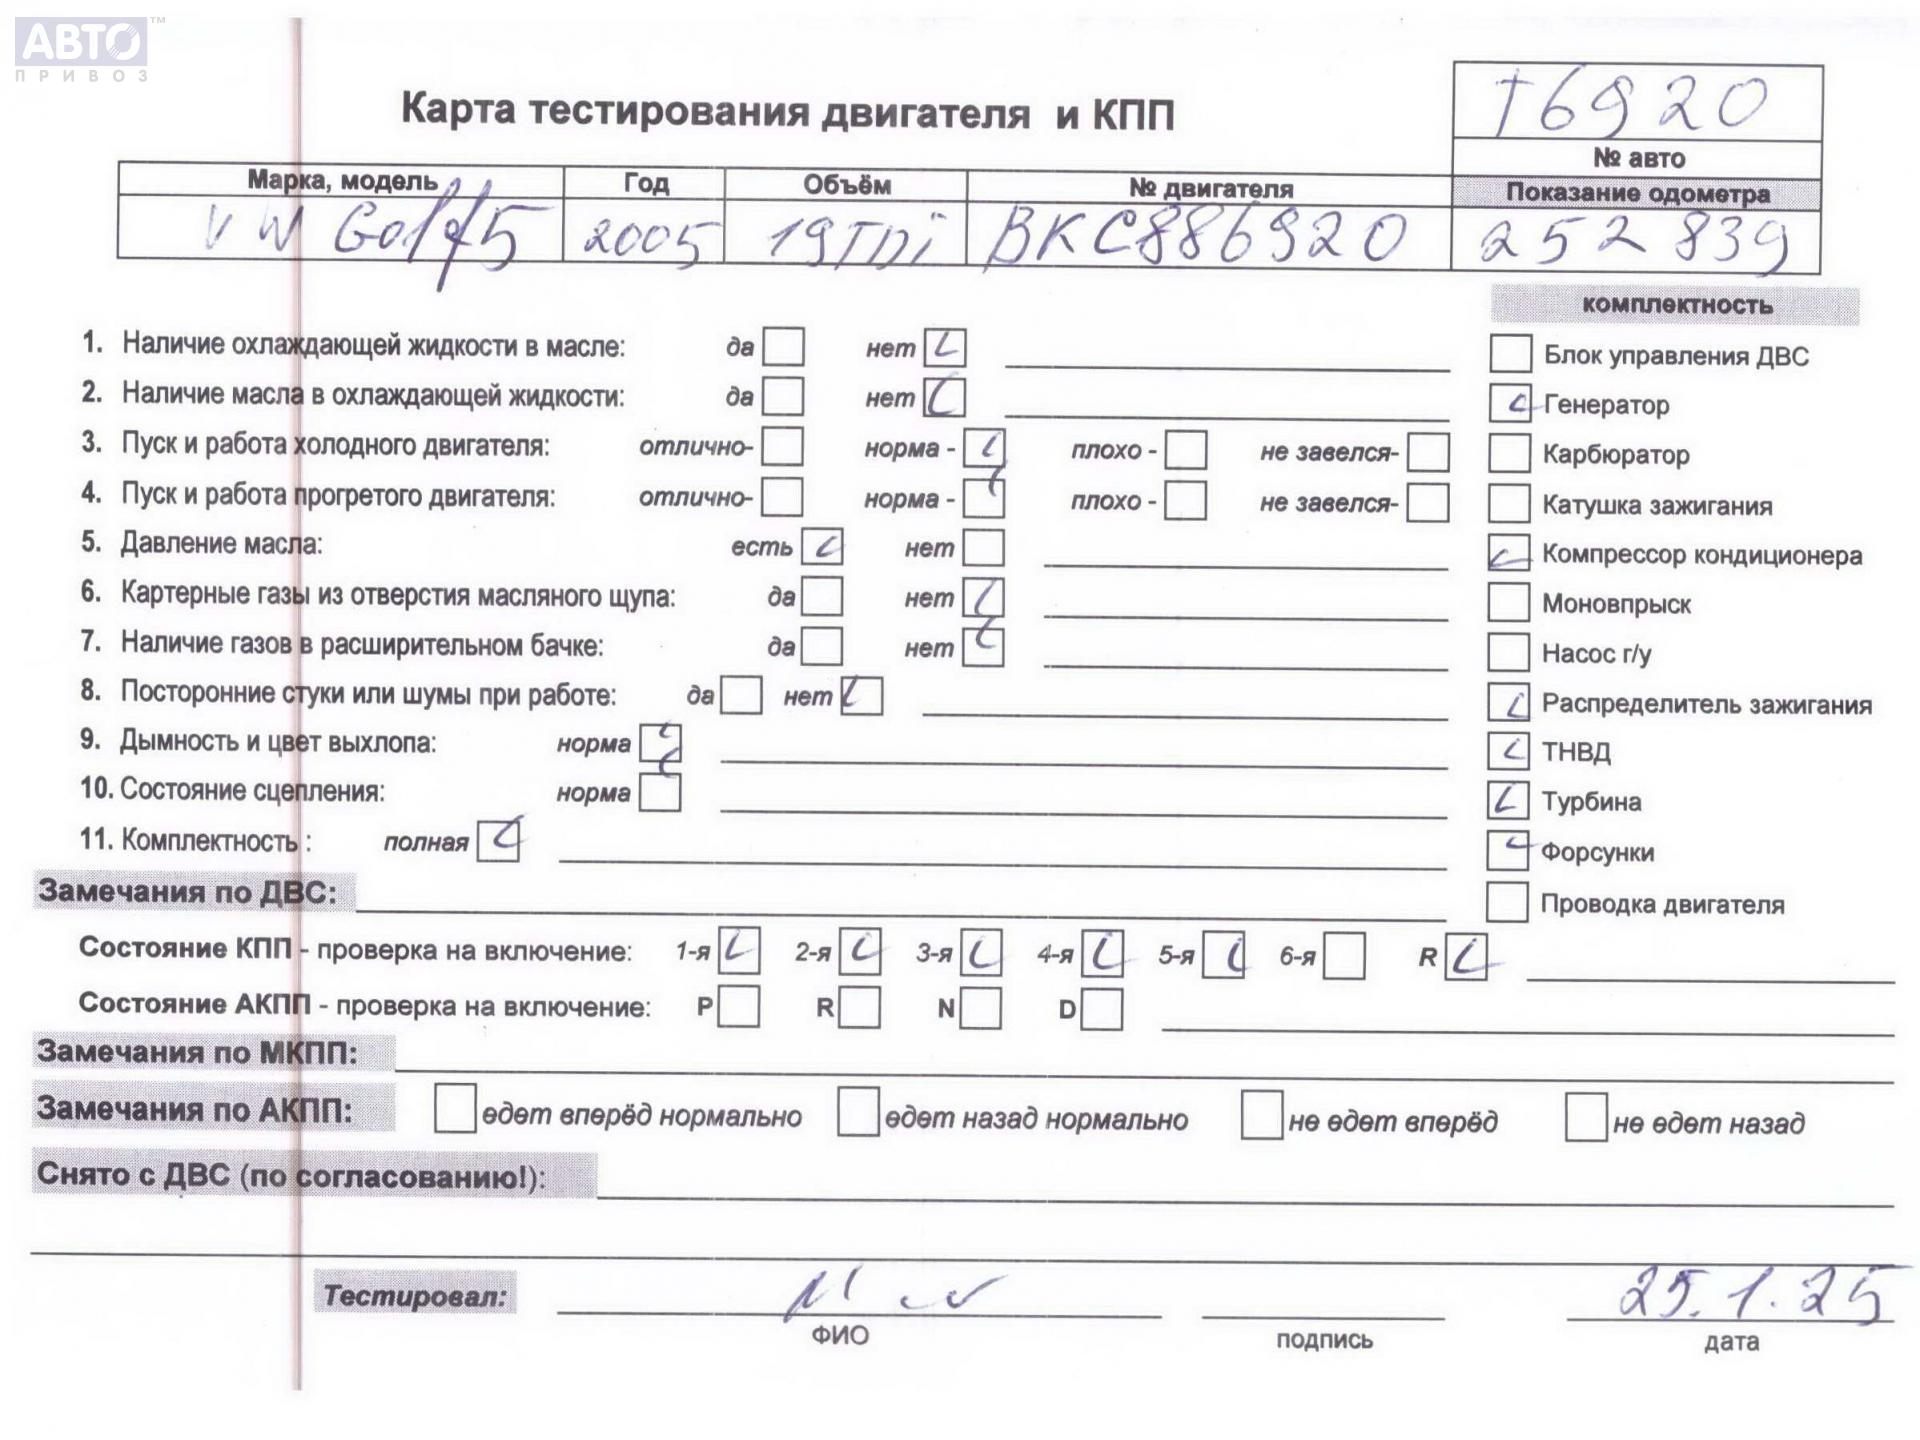 АВТО™
ПРИВОЗ
Карта тестирования двигателя и КПП
т6920
№ авто
Марка, модель Год Объём № двигателя Показание одометра
VW Golf 5 2005 19TDi BKC886920 252 839
комплектность
1. Наличие охлаждающей жидкости в масле: да нет
Блок управления ДВС
2. Наличие масла в охлаждающей жидкости: да нет
Генератор
3. Пуск и работа холодного двигателя: отлично- норма - плохо - не завелся-
Карбюратор
4. Пуск и работа прогретого двигателя: отлично- норма - плохо - не завелся-
Катушка зажигания
5. Давление масла: есть нет
Компрессор кондиционера
6. Картерные газы из отверстия масляного щупа: да нет
Моновпрыск
7. Наличие газов в расширительном бачке: да нет
Насос г/у
8. Посторонние стуки или шумы при работе: да нет
Распределитель зажигания
9. Дымность и цвет выхлопа: норма
ТНВД
10. Состояние сцепления: норма
Турбина
11. Комплектность : полная
Форсунки
Замечания по ДВС:
Проводка двигателя
Состояние КПП - проверка на включение: 1-я 2-я 3-я 4-я 5-я 6-я R
Состояние АКПП - проверка на включение: P R N D
Замечания по МКПП:
Замечания по АКПП: едет вперёд нормально едет назад нормально не едет вперёд не едет назад
Снято с ДВС (по согласованию!):
Тестировал: 25.1.25
ФИО подпись дата